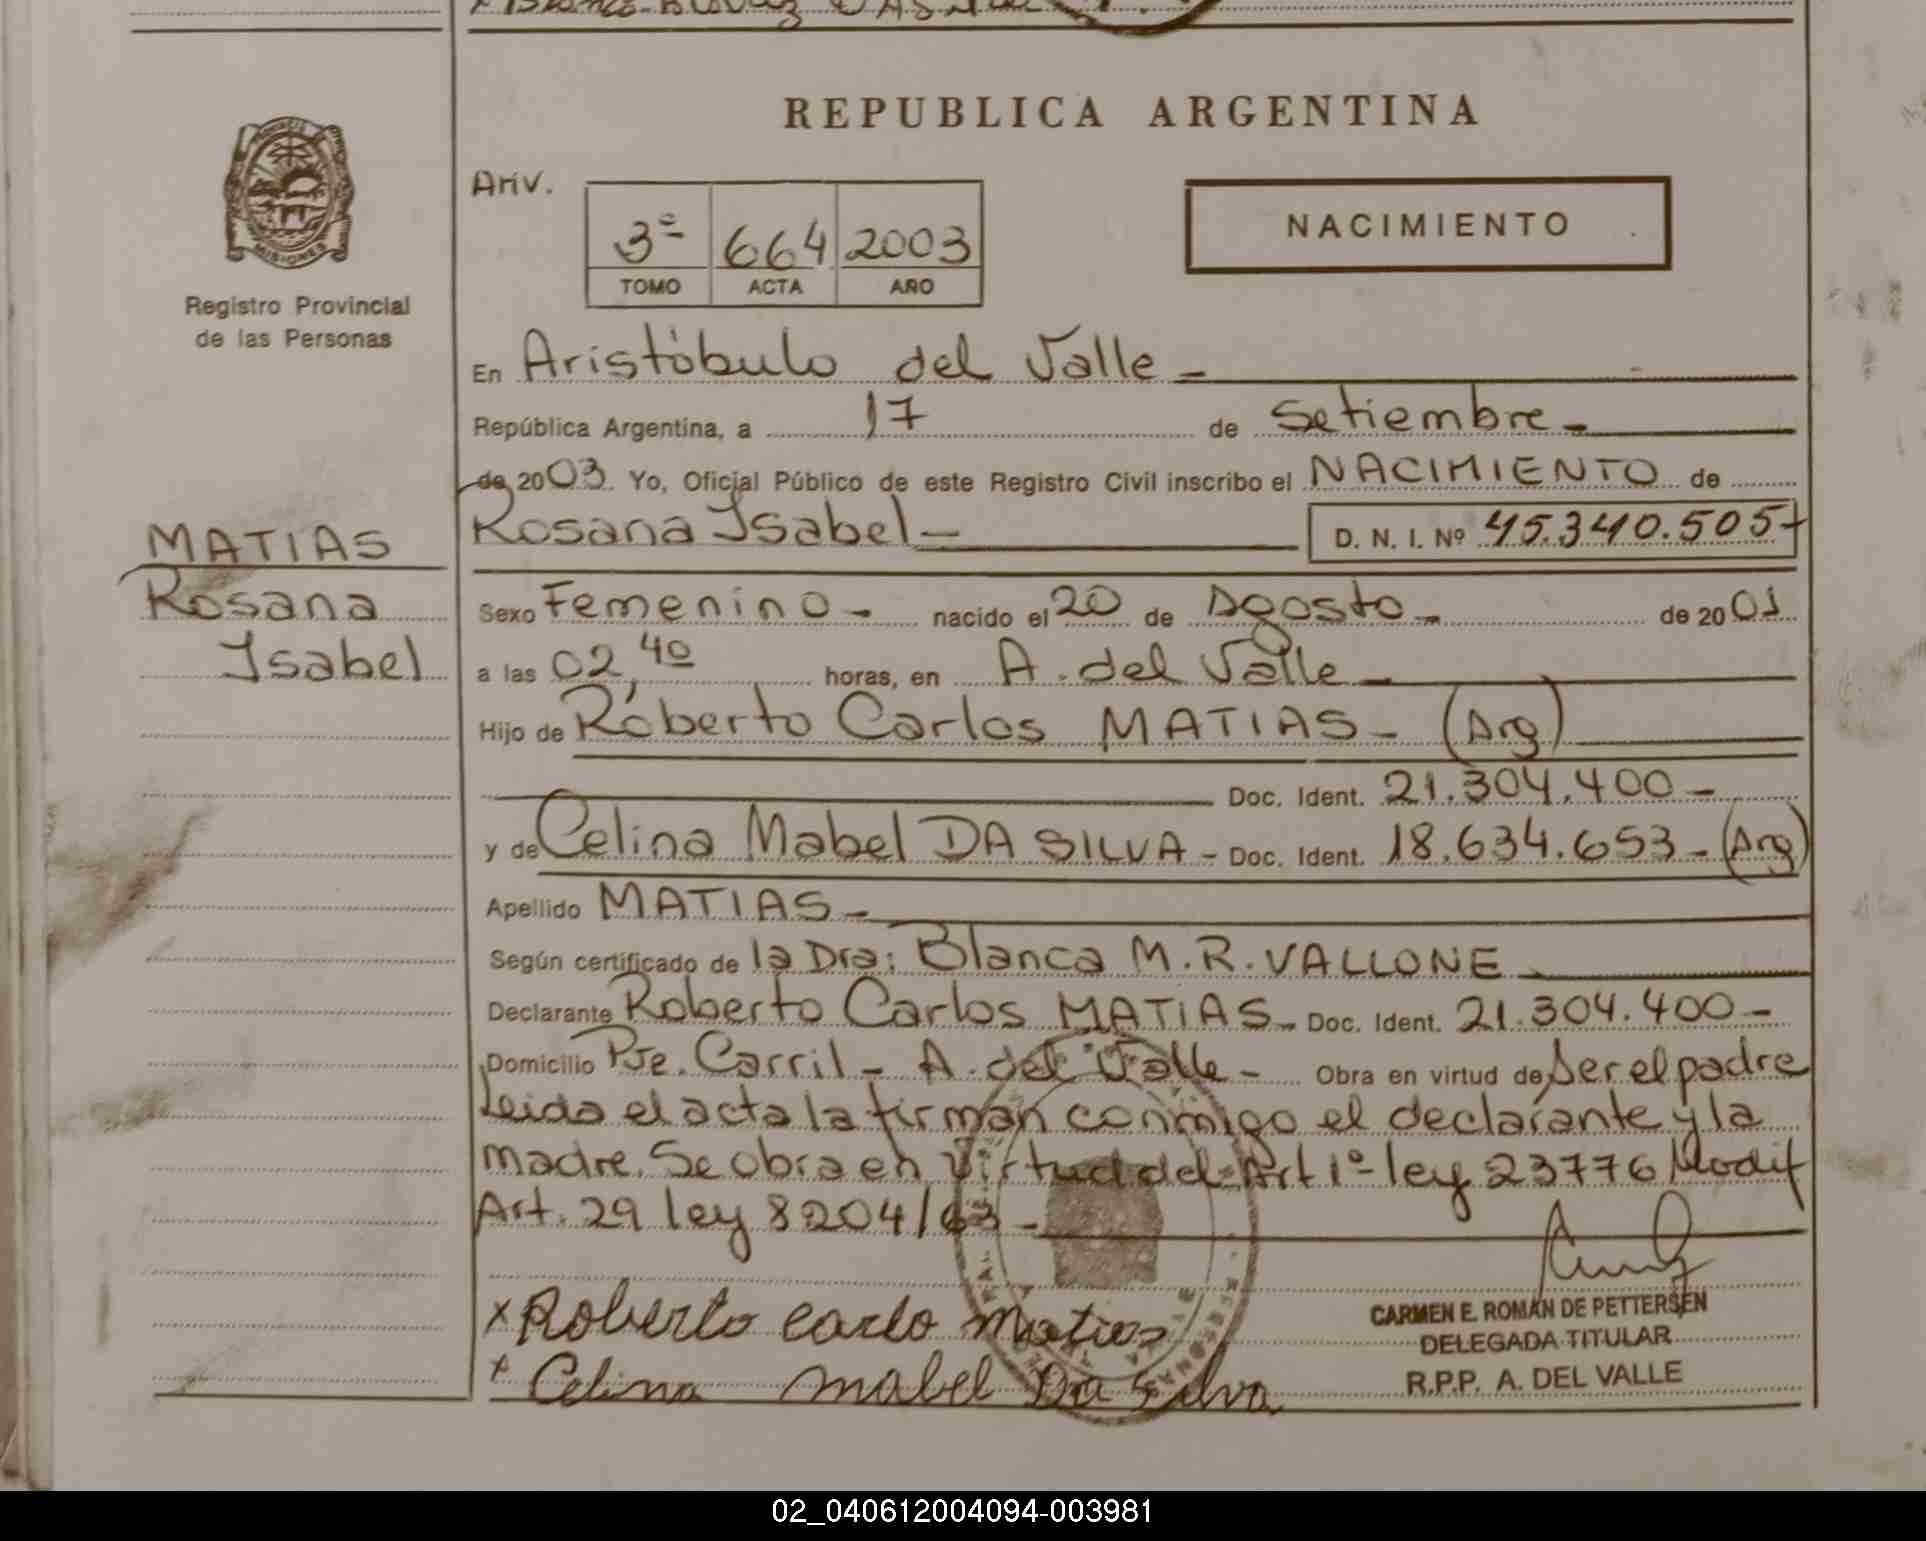 REPUBLICA ARGENTINA
PROVINCIA
MISIONES
Registro Provincial
de las Personas
Ariv.
3º 664 2003
TOMO ACTA AÑO
NACIMIENTO
En Aristóbulo del Valle -
República Argentina, a 17 de Setiembre -
de 2003. Yo, Oficial Público de este Registro Civil inscribo el NACIMIENTO de
Rosana Isabel - D. N. I. Nº 45.340.505-
MATIAS
Rosana
Isabel
Sexo Femenino - nacido el 20 de Agosto - de 2001
a las 02,40 horas, en A. del Valle -
Hijo de Roberto Carlos MATIAS - (Arg)
Doc. Ident. 21.304.400 -
y de Celina Mabel DA SILVA - Doc. Ident. 18.634.653 - (Arg)
Apellido MATIAS -
Según certificado de la Dra: Blanca M. R. VALLONE
Declarante Roberto Carlos MATIAS - Doc. Ident. 21.304.400 -
Domicilio Pje. Carril - A. del Valle - Obra en virtud de ser el padre
Leida el acta la firman conmigo el declarante y la
madre. Se obra en virtud del Art 1º ley 23776 Modif
Art. 29 ley 8204/63 -
x Roberto carlo Matias
x Celina mabel Da Silva
CARMEN E. ROMAN DE PETTERSEN
DELEGADA TITULAR
R.P.P. A. DEL VALLE
02_040612004094-003981